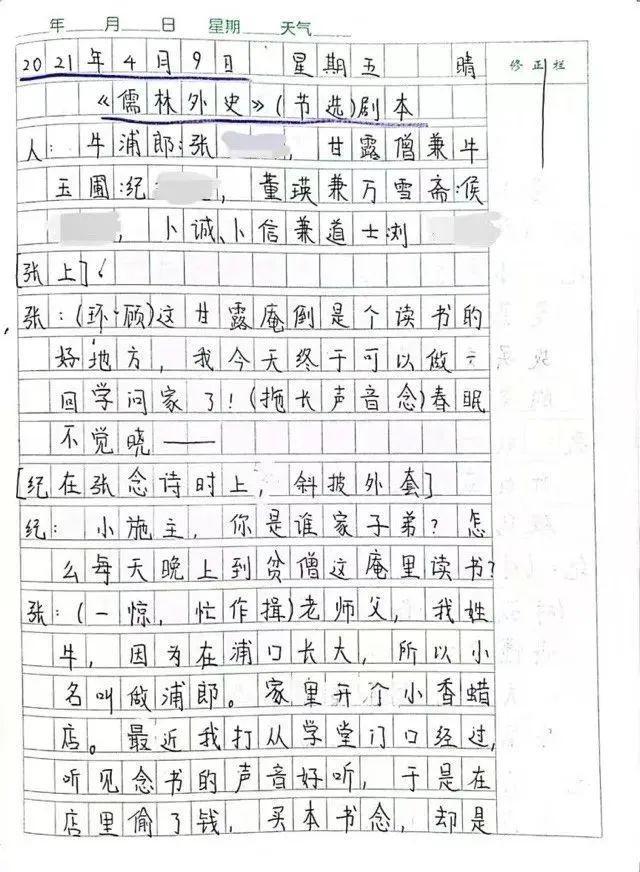 年 月 日 星期 天气
2021年4月9日 星期五 晴
修正栏
《儒林外史》(节选)剧本
人：牛浦郎:张 ，甘露僧兼牛
玉圃:纪 ，董瑛兼万雪斋:侯
，卜诚、卜信兼道士:刘
[张上]
张：(环顾)这甘露庵倒是个读书的
好地方，我今天终于可以做一
回学问家了！(拖长声音念)春眠
不觉晓——
[纪在张念诗时上，斜披外套]
纪：小施主，你是谁家子弟？怎
么每天晚上到贫僧这庵里读书?
张：(一惊，忙作揖)老师父，我姓
牛，因为在浦口长大，所以小
名叫做浦郎。家里开个小香蜡
店。最近我打从学堂门口经过，
听见念书的声音好听，于是在
店里偷了钱，买本书念，却是